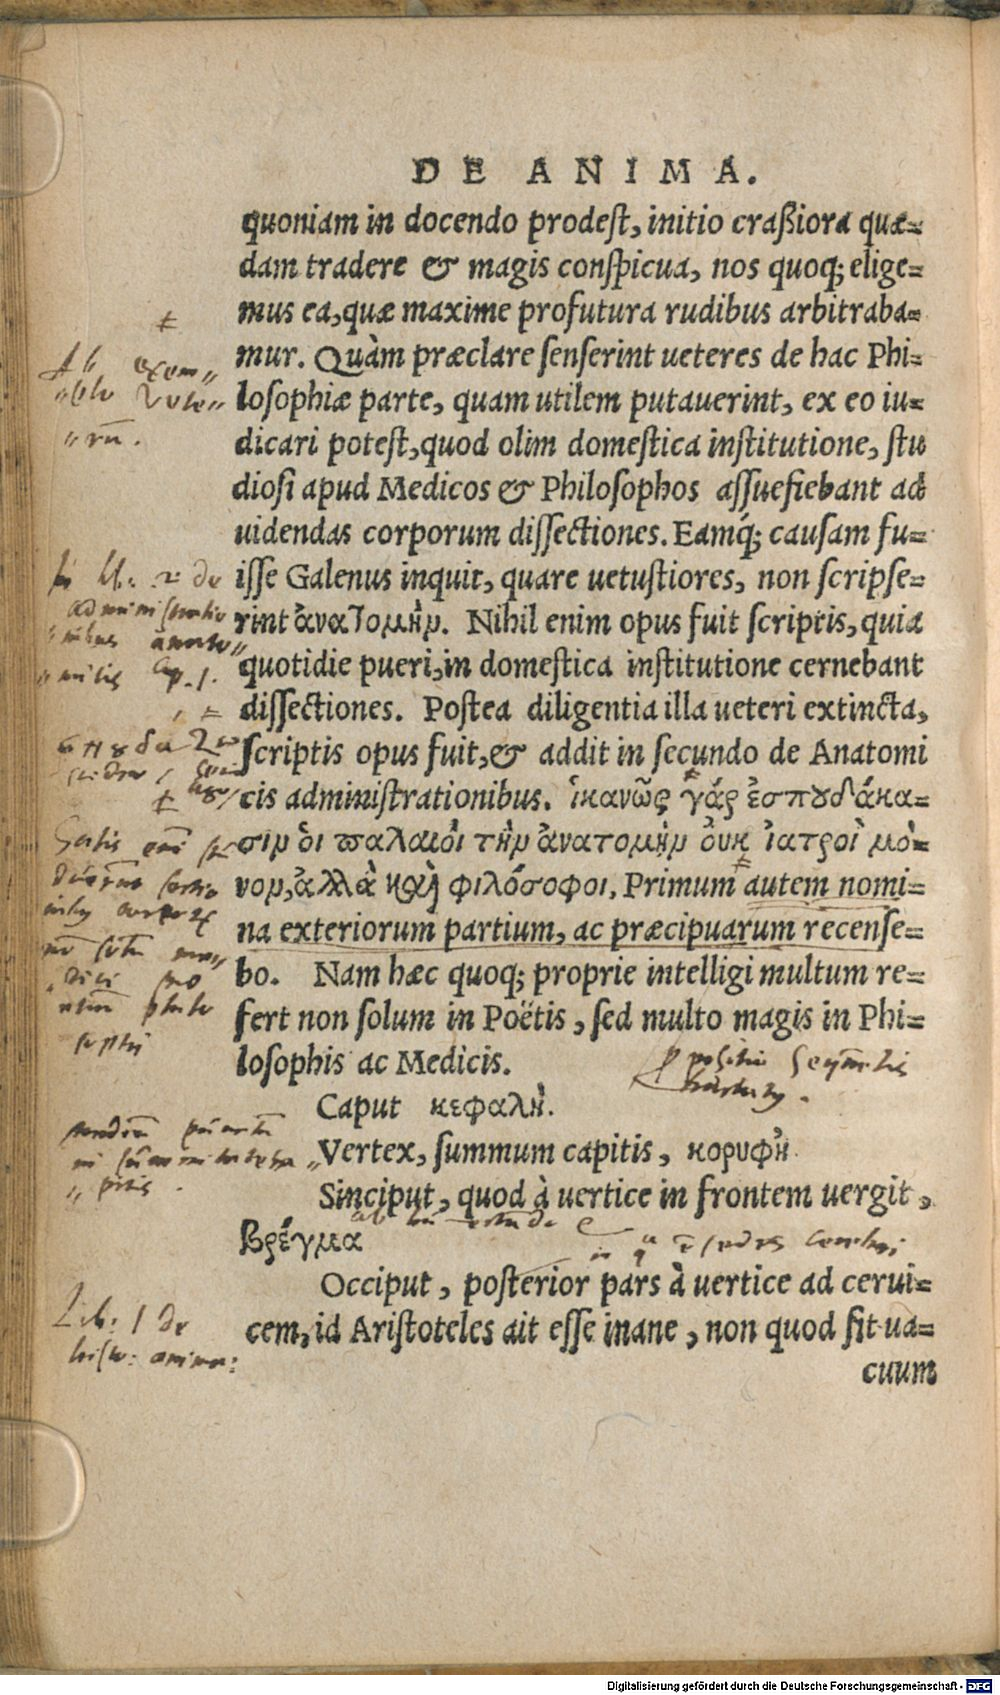 DE ANIMA.
quoniam in docendo prodeſt, initio craßiora quæ=
dam tradere & magis conſpicua, nos quoq; elige=
mus ea, quæ maxime profutura rudibus arbitraba=
mur. Quàm præclare ſenſerint ueteres de hac Phi=
loſophiæ parte, quam utilem putauerint, ex eo iu=
dicari poteſt, quod olim domeſtica inſtitutione, ſtu
dioſi apud Medicos & Philoſophos aſſuefiebant ad
uidendas corporum diſſectiones. Eamq́; cauſam fu=
iſſe Galenus inquit, quare uetuſtiores, non ſcripſe=
rint ἀνατομήν. Nihil enim opus fuit ſcriptis, quia
quotidie pueri, in domeſtica inſtitutione cernebant
diſſectiones. Poſtea diligentia illa ueteri extincta,
ſcriptis opus fuit, & addit in ſecundo de Anatomi
cis adminiſtrationibus. ἱκανῶς γάρ ἐσπȣδάκα=
σιν ὁι παλαιὸι τὴν ἀνατομὴν ὀυκ ἰατροὶ μό=
νον, ἀλλὰ κὴ φιλόσοφοι, Primum autem nomi=
na exteriorum partium, ac præcipuarum recenſe=
bo. Nam hæc quoq; proprie intelligi multum re=
fert non ſolum in Poëtis, ſed multo magis in Phi=
loſophis ac Medicis.
Caput κεφαλὴ.
Vertex, ſummum capitis, κορυφὴ.
Sinciput, quod à uertice in frontem uergit,
βρέγμα
Occiput, poſterior pars à uertice ad cerui=
cem, id Ariſtoteles ait eſſe inane, non quod ſit ua=
cuum
Ab exem„
„plo Vete„
„rū.
In lib. 2 de
adminiſtratio
„nibus anato„
„micis Cap. 1.
Lib. 1 de
hiſto: anima:
Digitalisierung gefördert durch die Deutsche Forschungsgemeinschaft - DFG